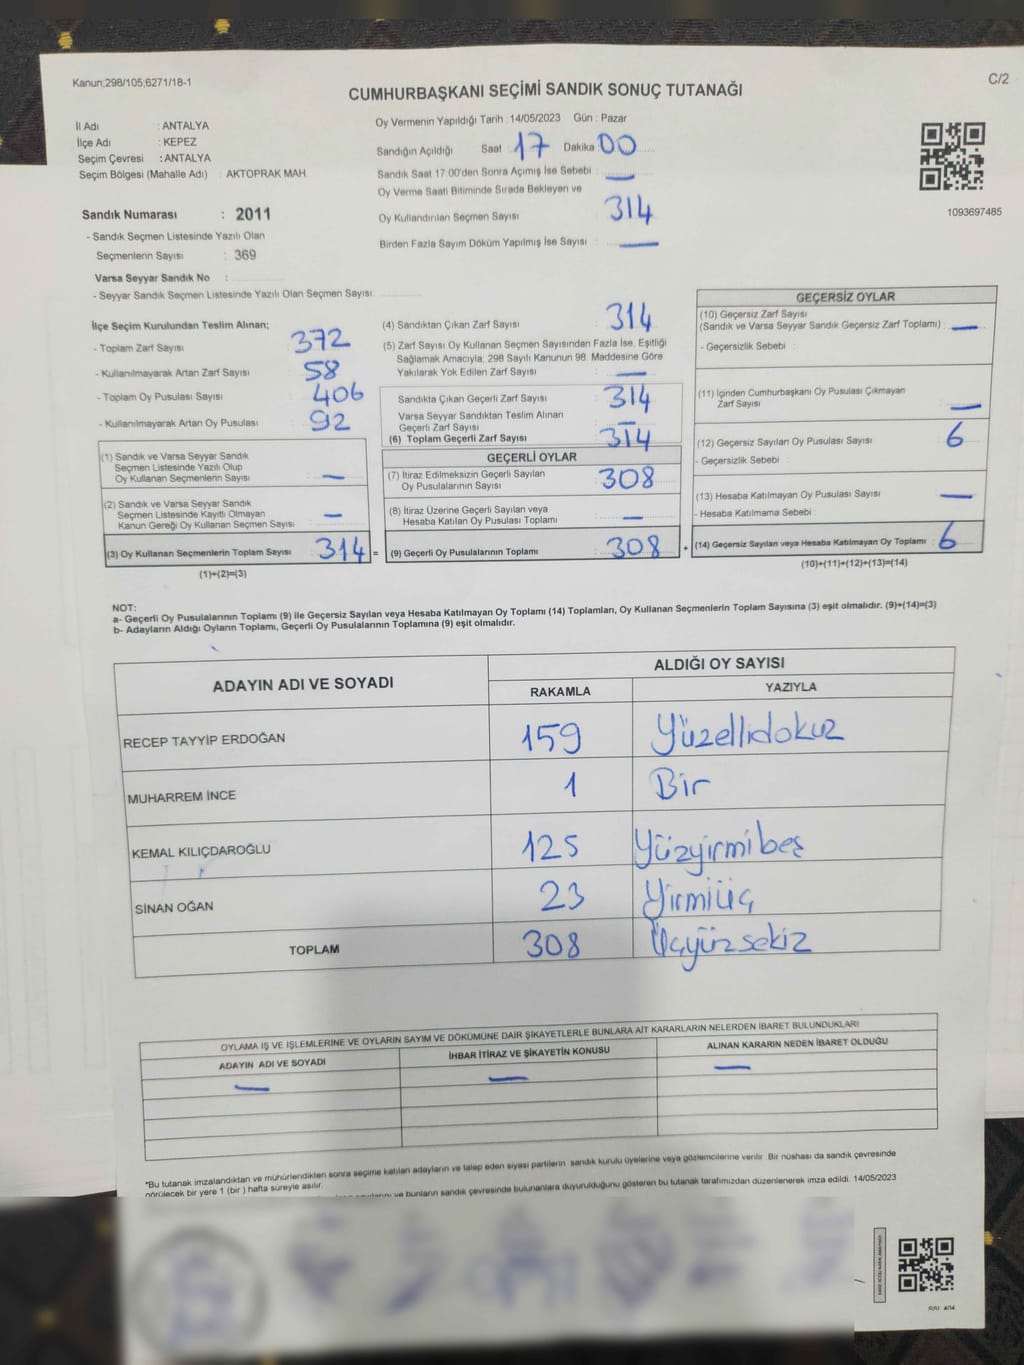 Kanun;298/105;6271/18-1
C/2
CUMHURBAŞKANI SEÇİMİ SANDIK SONUÇ TUTANAĞI
İl Adı : ANTALYA
İlçe Adı : KEPEZ
Seçim Çevresi : ANTALYA
Seçim Bölgesi (Mahalle Adı) : AKTOPRAK MAH.
Sandık Numarası : 2011
- Sandık Seçmen Listesinde Yazılı Olan
Seçmenlerin Sayısı : 369
Varsa Seyyar Sandık No :
- Seyyar Sandık Seçmen Listesinde Yazılı Olan Seçmen Sayısı:
Oy Vermenin Yapıldığı Tarih : 14/05/2023 Gün : Pazar
Sandığın Açıldığı Saat : 17 Dakika 00
Sandık Saat 17:00'den Sonra Açımış İse Sebebi : —
Oy Verme Saati Bitiminde Sırada Bekleyen ve
Oy Kullandırılan Seçmen Sayısı : 314
Birden Fazla Sayım Döküm Yapılmış İse Sayısı : —
1093697485
İlçe Seçim Kurulundan Teslim Alınan;
- Toplam Zarf Sayısı 372
- Kullanılmayarak Artan Zarf Sayısı : 58
- Toplam Oy Pusulası Sayısı : 406
- Kullanılmayarak Artan Oy Pusulası : 92
(1) Sandık ve Varsa Seyyar Sandık
Seçmen Listesinde Yazılı Olup
Oy Kullanan Seçmenlerin Sayısı : —
(2) Sandık ve Varsa Seyyar Sandık
Seçmen Listesinde Kayıtlı Olmayan
Kanun Gereği Oy Kullanan Seçmen Sayısı : —
(3) Oy Kullanan Seçmenlerin Toplam Sayısı 314 =
(1)+(2)=(3)
(4) Sandıktan Çıkan Zarf Sayısı : 314
(5) Zarf Sayısı Oy Kullanan Seçmen Sayısından Fazla İse, Eşitliği
Sağlamak Amacıyla, 298 Sayılı Kanunun 98. Maddesine Göre
Yakılarak Yok Edilen Zarf Sayısı : —
Sandıkta Çıkan Geçerli Zarf Sayısı : 314
Varsa Seyyar Sandıktan Teslim Alınan
Geçerli Zarf Sayısı : —
(6) Toplam Geçerli Zarf Sayısı : 314
GEÇERLİ OYLAR
(7) İtiraz Edilmeksizin Geçerli Sayılan
Oy Pusulalarının Sayısı : 308
(8) İtiraz Üzerine Geçerli Sayılan veya
Hesaba Katılan Oy Pusulası Toplamı : —
(9) Geçerli Oy Pusulalarının Toplamı : 308 +
GEÇERSİZ OYLAR
(10) Geçersiz Zarf Sayısı
(Sandık ve Varsa Seyyar Sandık Geçersiz Zarf Toplamı) : —
- Geçersizlik Sebebi :
(11) İçinden Cumhurbaşkanı Oy Pusulası Çıkmayan
Zarf Sayısı : —
(12) Geçersiz Sayılan Oy Pusulası Sayısı : 6
- Geçersizlik Sebebi :
(13) Hesaba Katılmayan Oy Pusulası Sayısı : —
- Hesaba Katılmama Sebebi :
(14) Geçersiz Sayılan veya Hesaba Katılmayan Oy Toplamı : 6
(10)+(11)+(12)+(13)=(14)
NOT:
a- Geçerli Oy Pusulalarının Toplamı (9) ile Geçersiz Sayılan veya Hesaba Katılmayan Oy Toplamı (14) Toplamları, Oy Kullanan Seçmenlerin Toplam Sayısına (3) eşit olmalıdır. (9)+(14)=(3)
b- Adayların Aldığı Oyların Toplamı, Geçerli Oy Pusulalarının Toplamına (9) eşit olmalıdır.
ADAYIN ADI VE SOYADI ALDIĞI OY SAYISI
RAKAMLA YAZIYLA
RECEP TAYYİP ERDOĞAN 159 Yüzellidokuz
MUHARREM İNCE 1 Bir
KEMAL KILIÇDAROĞLU 125 Yüzyirmibeş
SİNAN OĞAN 23 Yirmiüç
TOPLAM 308 Üçyüzsekiz
OYLAMA İŞ VE İŞLEMLERİNE VE OYLARIN SAYIM VE DÖKÜMÜNE DAİR ŞİKAYETLERLE BUNLARA AİT KARARLARIN NELERDEN İBARET BULUNDUKLARI
ADAYIN ADI VE SOYADI İHBAR İTİRAZ VE ŞİKAYETİN KONUSU ALINAN KARARIN NEDEN İBARET OLDUĞU
— — —
*Bu tutanak imzalandıktan ve mühürlendikten sonra seçime katılan adayların ve talep eden siyasi partilerin sandık kurulu üyelerine veya gözlemcilerine verilir. Bir nüshası da sandık çevresinde
görülecek bir yere 1 (bir ) hafta süreyle asılır.
ve bunların sandık çevresinde bulunanlara duyurulduğunu gösteren bu tutanak tarafımızdan düzenlenerek imza edildi. 14/05/2023